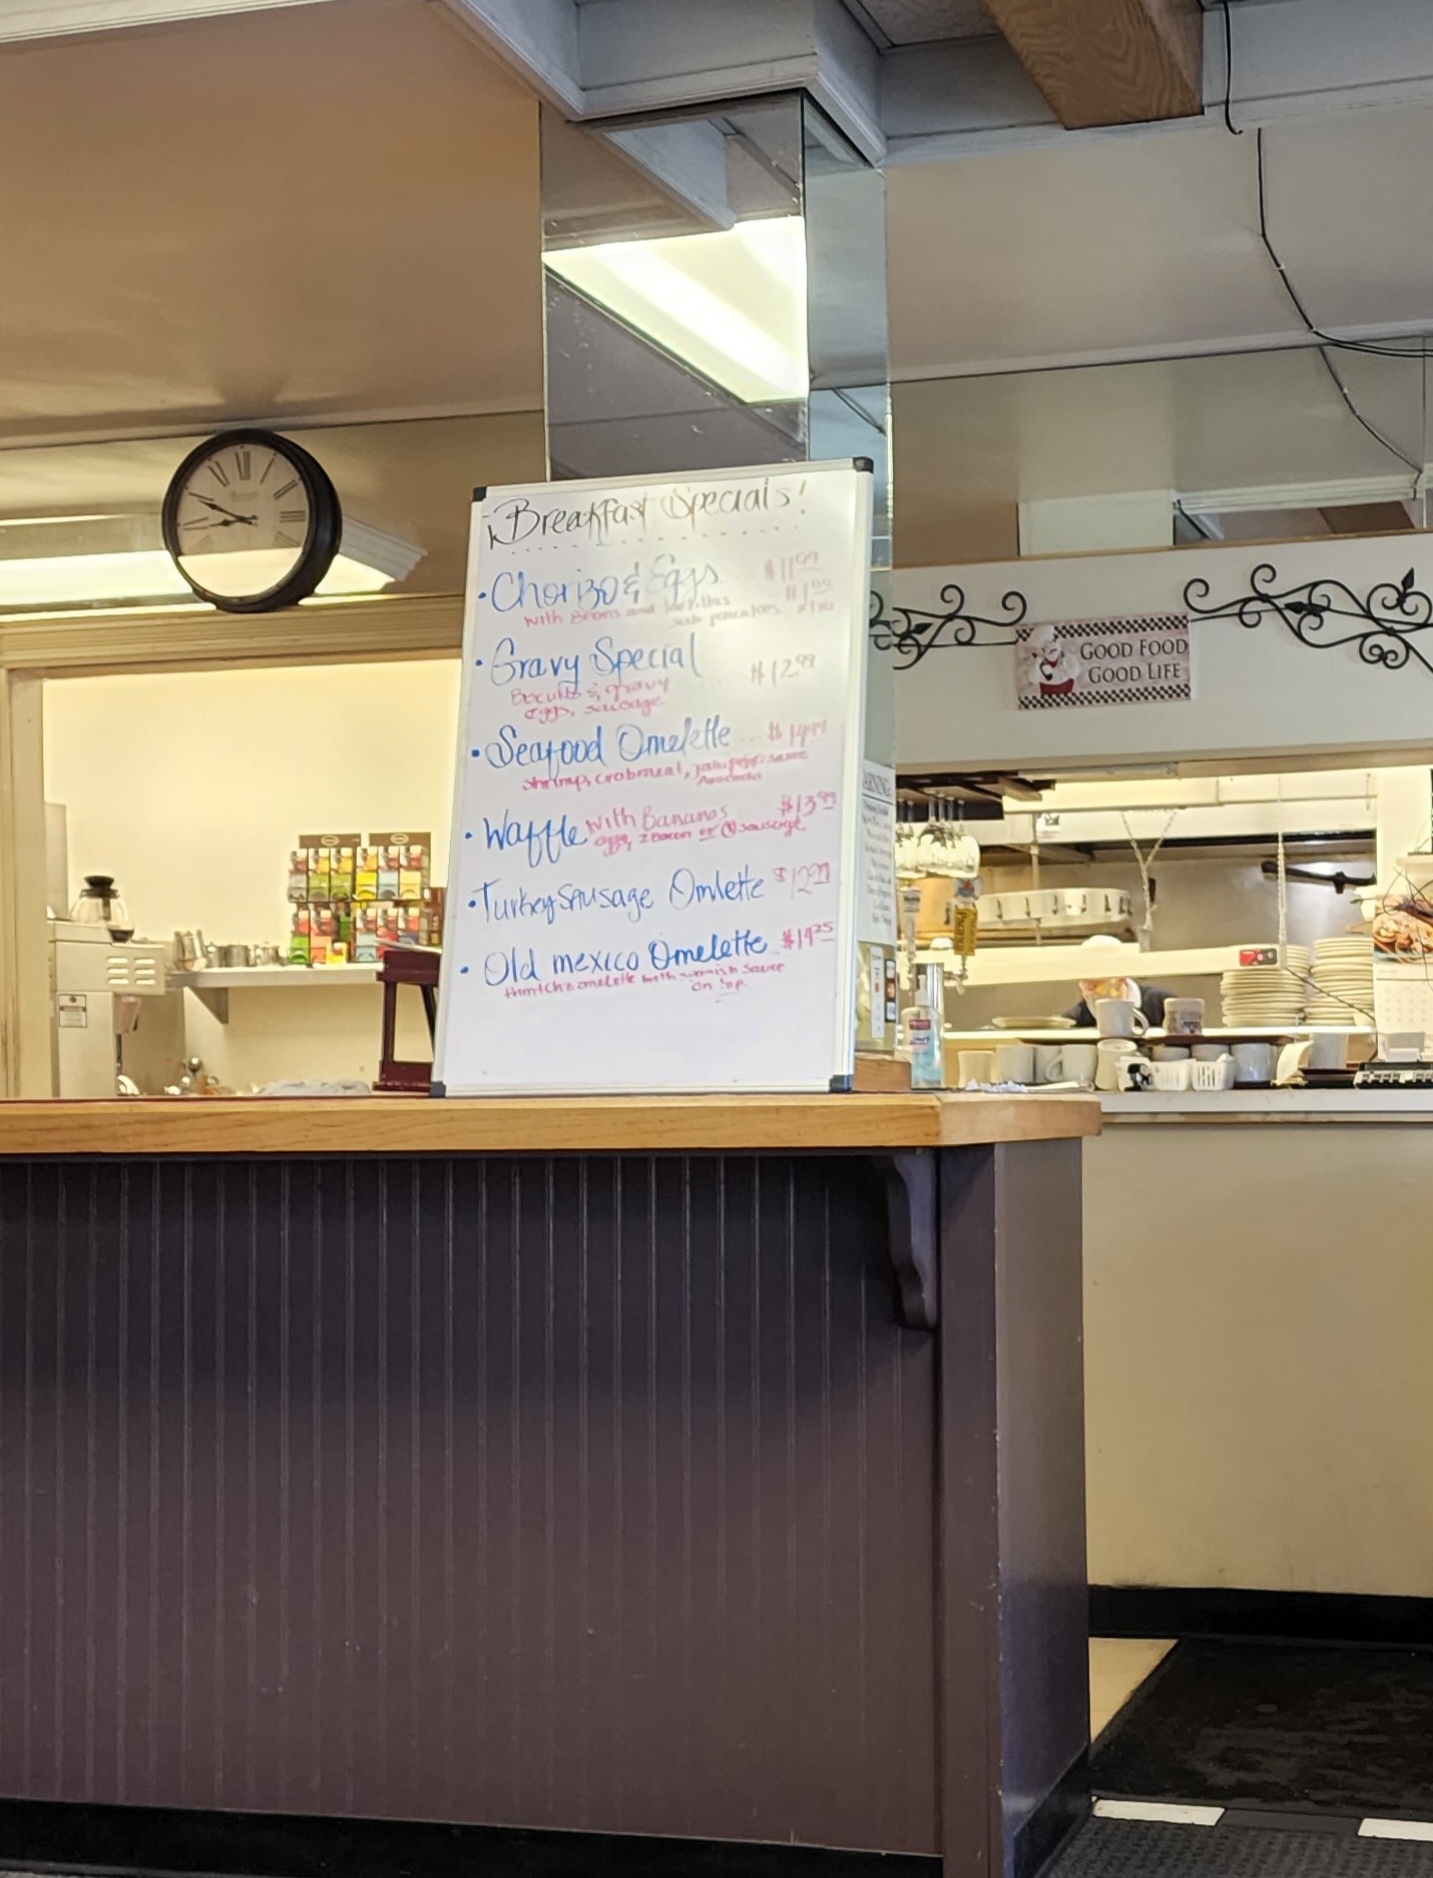 ¡Breakfast Specials!
• Chorizo & Eggs $11.99
with Beans and tortillas $1.99
sub pancakes xtra
• Gravy Special $12.99
Biscuits & gravy
eggs, sausage
• Seafood Omelette $14.99
shrimp, crabmeat,
Avocado
• Waffle with Bananas $13.99
eggs, 2 Bacon or sausage
• Turkey sausage Omlette $12.99
• Old mexico Omelette
omelette with sauce
on top
GOOD FOOD
GOOD LIFE